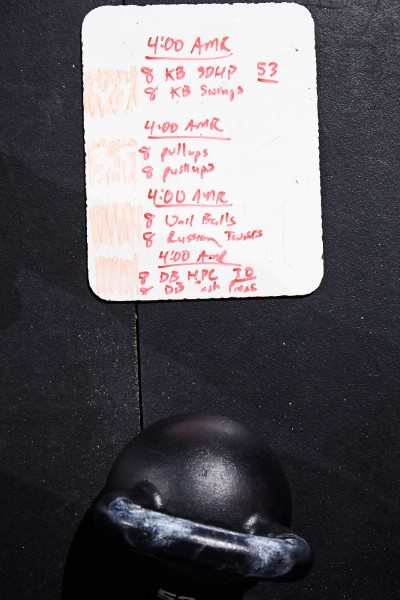 4:00 AMR
8 KB SDHP 53
8 KB Swings
4:00 AMR
8 pullups
8 pushups
4:00 AMR
8 Wall Balls
8 Russian Twists
4:00 AMR
8 DB HPC
8 DB Push Press
53